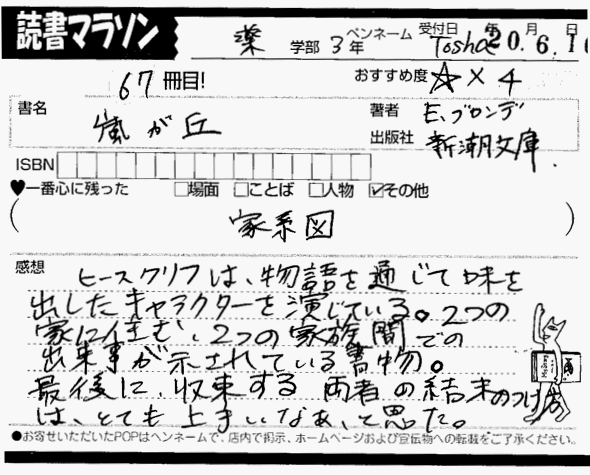 読書マラソン
薬 学部 3年 ペンネーム Tosha 受付日 年 月 日
20.6.1
67 冊目! おすすめ度 ☆×4
書名 嵐が丘
著者 E.ブロンテ
出版社 新潮文庫.
ISBN
♥一番心に残った □場面 □ことば □人物 ☑その他
(家系図)
感想
ヒースクリフは、物語を通じて味を
出したキャラクターを演じている。2つの
家に住む、2つの家族間での
出来事が示されている書物。
最後に、収束する両者の結末のつけ方
は、とても上手いなあ、と思った。
●お寄せいただいたPOPはペンネームで、店内で掲示、ホームページおよび宣伝物への転載をご了承ください。